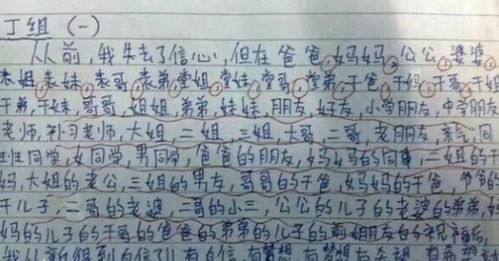 丁组 (一)
从前,我失去了信心,但在爸爸,妈妈,公公,婆婆,
表姐,表妹,表哥,表弟,堂姐,堂妹,堂哥,堂弟,干爸,干妈,干哥,干姐
干弟,干妹,哥哥,姐姐,弟弟,妹妹,朋友,好友,小学朋友,中学朋友
老师,补习老师,大姐,二姐,三姐,大哥,二哥,老朋友,亲戚,同
性同学,女同学,男同学,爸爸的朋友,妈妈的同事,二姐的干
妈,大姐的老公,三姐的男友,哥哥的干爸,妈妈的干爸,爷爷的
干儿子,二哥的老婆,二哥的小三,公公的儿子的老婆的弟弟,
妈的儿子的干哥的爸爸的弟弟的儿子的前姐夫的祝福后,
我从新得到自信了!有自信,有梦想,有梦想有希望,有希望